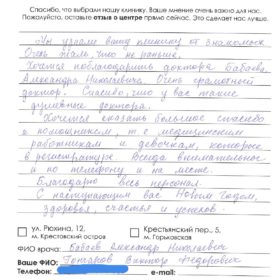 Спасибо, что выбрали нашу клинику. Ваше мнение очень важно для нас.
Пожалуйста, оставьте отзыв о центре прямо сейчас. Это сделает нас лучше.
Мы узнали вашу клинику от знакомых
Очень жаль, что не раньше.
Хочется поблагодарить доктора Бабаева
Александра Николаевича. Очень грамотный
доктор. Спасибо, что у вас такие
душевные доктора.
Хочется сказать большое спасибо
и помощникам, т.е медицинским
работникам и девочкам, которые
в регистратуре. Всегда внимательные
и по телефону и на месте.
Благодарю весь персонал.
С наступающим вас Новым годом,
здоровья, счастья и успехов.
ул. Рюхина, 12,
м. Крестовский остров
Крестьянский пер., 5,
м. Горьковская
ФИО врача: Бабаев Александр Николаевич
Ваше ФИО: Виктор Федорович
Телефон: e-mail: